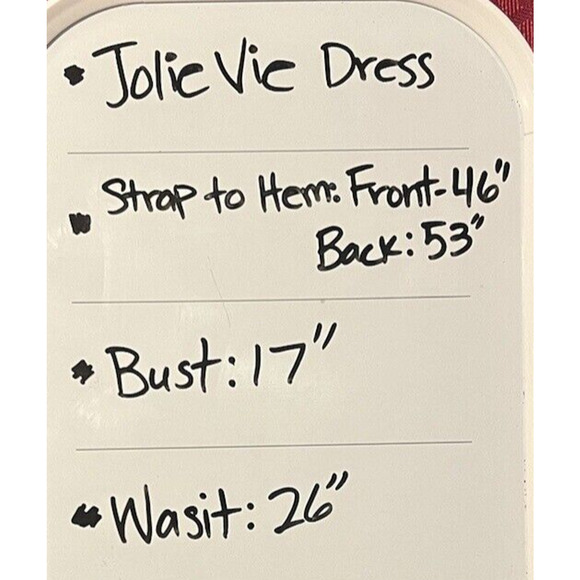 Jolie Vie Dress
Strap to Hem: Front-46"
Back: 53"
Bust: 17"
Wasit: 26"